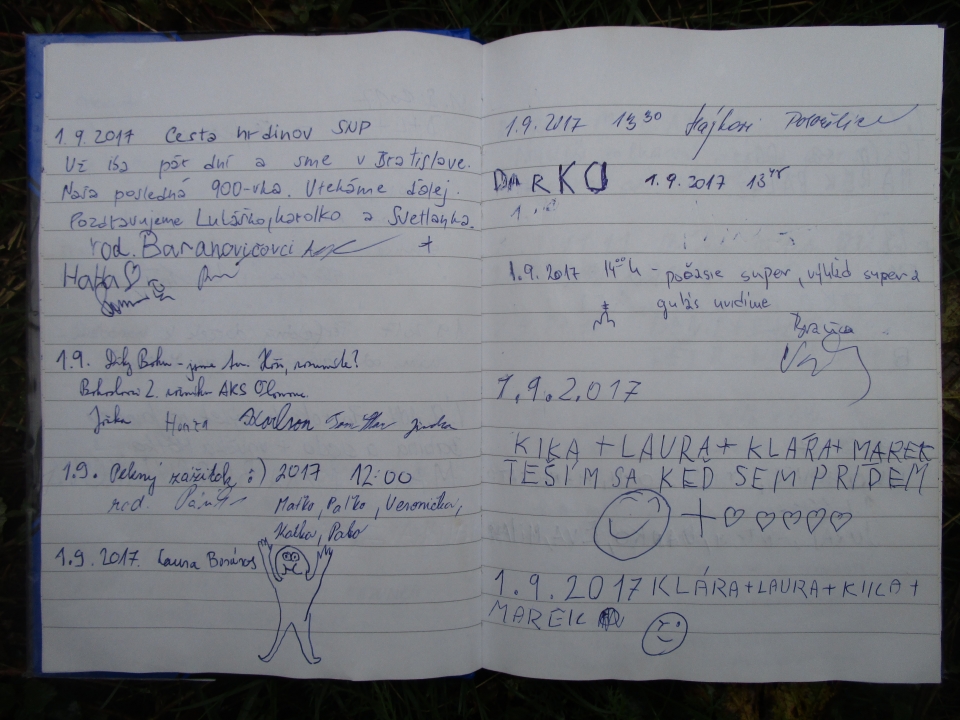 1.9.2017 Cesta hrdinov SNP
Už iba pár dní a sme v Bratislave.
Naša posledná 900-vka. Utekáme ďalej.
Pozdravujeme Lulášho, karolko a Svetlanka.
rod. Baranovicovci
HaHa
1.9. Díky Bohu - jsme tu.
Bohoslovci 2. ročníku AKS Olomouc
Jirka Honza Karlson Jindra
1.9. Pekný zážitok :) 2017 12:00
rod.
Maťko, Paľko, Veronička,
Katka, Palo
1.9.2017. Laura
1.9.2017 13 30 Hájkovi
DARKO 1.9.2017 13
1.
1.9.2017 14 00 h - počasie super, výhľad super a
guláš uvidíme
1.9.2017
KIKA + LAURA + KLÁRA + MAREK
TEŠIM SA KEĎ SEM PRIDEM
+
1.9.2017 KLÁRA + LAURA + KIKA +
MAREK